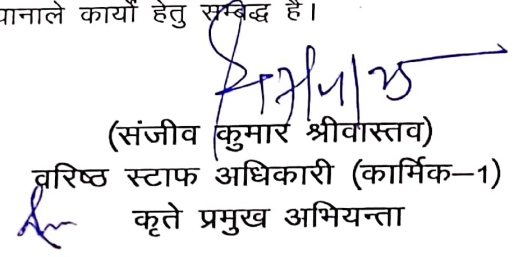 यानाले कार्यो हेतु सम्बिद्ध है।
(संजीव कुमार श्रीवास्तव)
वरिष्ठ स्टाफ अधिकारी (कार्मिक–1)
कृते प्रमुख अभियन्ता